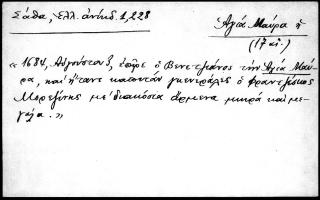 Σάθα, Ἑλλ. ἀνέκδ. 1,228
Ἁγία Μαύρα ἡ
(17 αἰ.)
« 1684, Αὐγούστου 3, ἐπῆρε ὁ Βενετζιάνος τὴν Ἁγία Μαύ-
ρα, καὶ ἤτανε καπετὰν γκενεράλες ὁ Φραντζέσκος
Μορεζίνης μὲ διακόσια ἄρμενα μικρὰ καὶ με-
γάλα. »